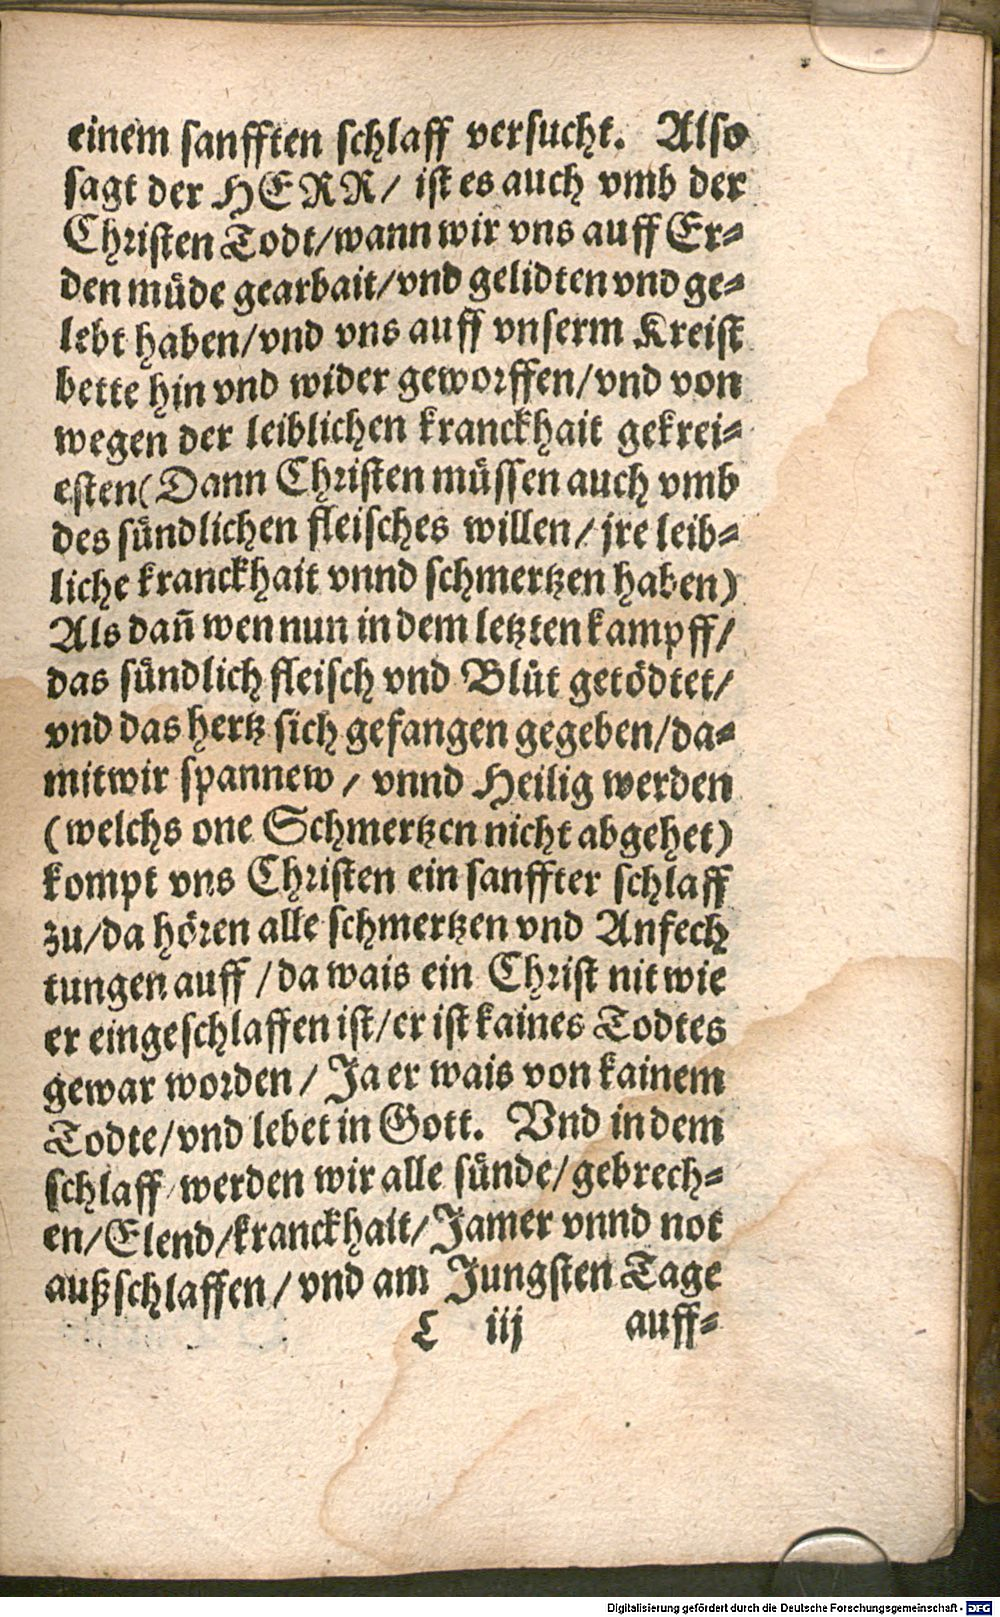 einem sanfften schlaff versucht. Also
sagt der HERR/ ist es auch vmb der
Christen Todt/wann wir vns auff Er-
den müde gearbait/vnd gelidten vnd ge-
lebt haben/vnd vns auff vnserm Kreist
bette hin vnd wider geworffen/vnd von
wegen der leiblichen kranckhait gekrei-
esten(Dann Christen müssen auch vmb
des sündlichen fleisches willen/jre leib-
liche kranckhait vnnd schmertzen haben)
Als dañ wen nun in dem letzten kampff/
das sündlich fleisch vnd Blůt getödtet/
vnd das hertz sich gefangen gegeben/da-
mit wir spannew/ vnnd Heilig werden
(welchs one Schmertzen nicht abgehet)
kompt vns Christen ein sanffter schlaff
zu/da hören alle schmertzen vnd Anfech
tungen auff/da wais ein Christ nit wie
er eingeschlaffen ist/er ist kaines Todtes
gewar worden/ Ja er wais von kainem
Todte/vnd lebet in Gott. Vnd in dem
schlaff/werden wir alle sünde/gebrech-
en/Elend/kranckhait/Jamer vnnd not
außschlaffen/vnd am Jungsten Tage
C iij auff-
Digitalisierung gefördert durch die Deutsche Forschungsgemeinschaft - DFG